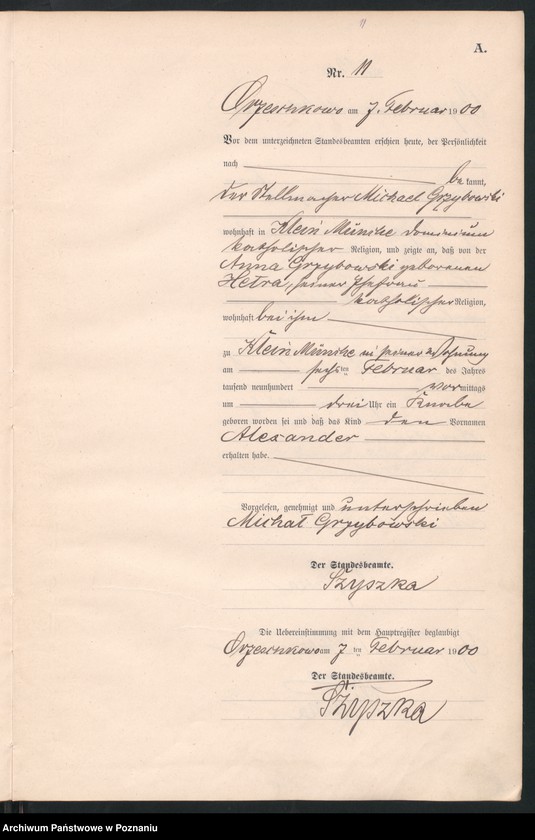 11
A.
Nr. 11
Orzeschkowo am 7. Februar 1900
Vor dem unterzeichneten Standesbeamten erschien heute, der Persönlichkeit
nach bekannt,
der Stellmacher Michael Grzybowski
wohnhaft in Klein Münche Dominium
katholischer Religion, und zeigte an, daß von der
Anna Grzybowski geborenen
Hetra, seiner Ehefrau
katholischer Religion,
wohnhaft bei ihm
zu Klein Münche in seiner Wohnung
am sechsten Februar des Jahres
tausend neunhundert vormittags
um drei Uhr ein Knabe
geboren worden sei und daß das Kind den Vornamen
Alexander
erhalten habe.
Vorgelesen, genehmigt und unterschrieben
Michał Grzybowski
Der Standesbeamte.
Szyszka
Die Uebereinstimmung mit dem Hauptregister beglaubigt
Orzeschkowo am 7ten Februar 1900
Der Standesbeamte.
Szyszka
Archiwum Państwowe w Poznaniu